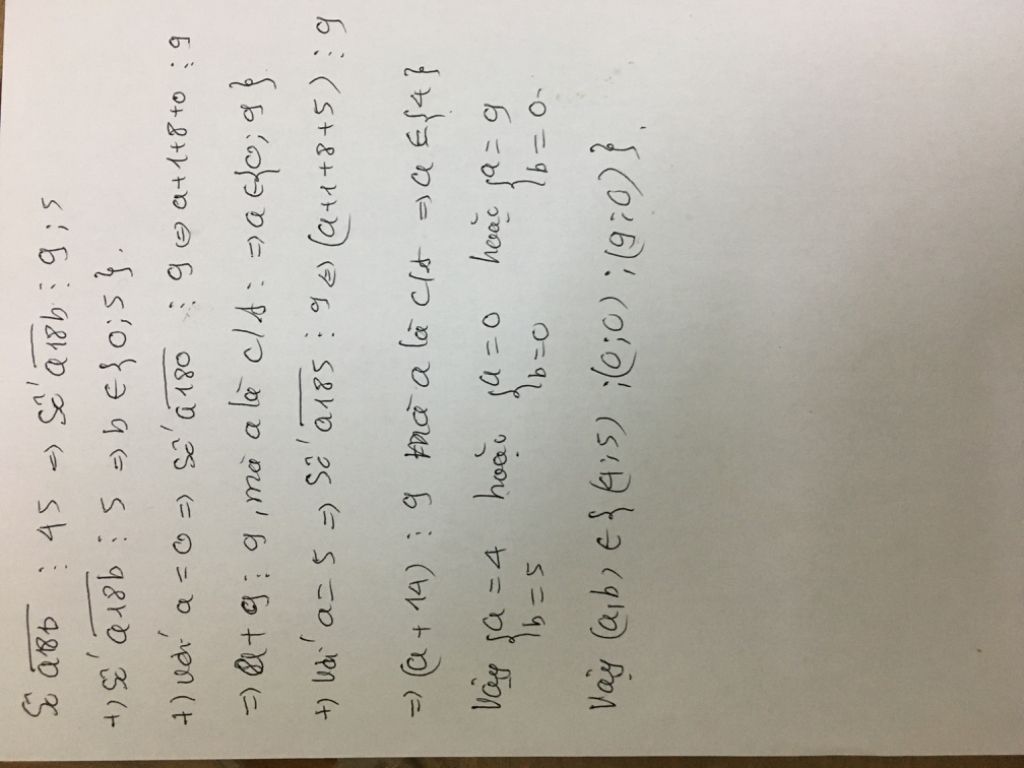 Số a18b ⋮ 45 => Số a18b ⋮ 9; 5
+) Số a18b ⋮ 5 => b ∈ {0; 5}.
+) Với a = 0 => Số a180 ⋮ 9 <=> a+1+8+0 ⋮ 9
=> a + 9 ⋮ 9, mà a là c/s: => a ∈ {0; 9}
+) Với a = 5 => Số a185 ⋮ 9 <=> (a+1+8+5) ⋮ 9
=> (a + 14) ⋮ 9 mà a là c/s => a ∈ {4}
Vậy { a = 4 hoặc { a = 0 hoặc { a = 9
b = 5 b = 0 b = 0
Vậy (a,b) ∈ { (4; 5) ; (0; 0) ; (9; 0) }.